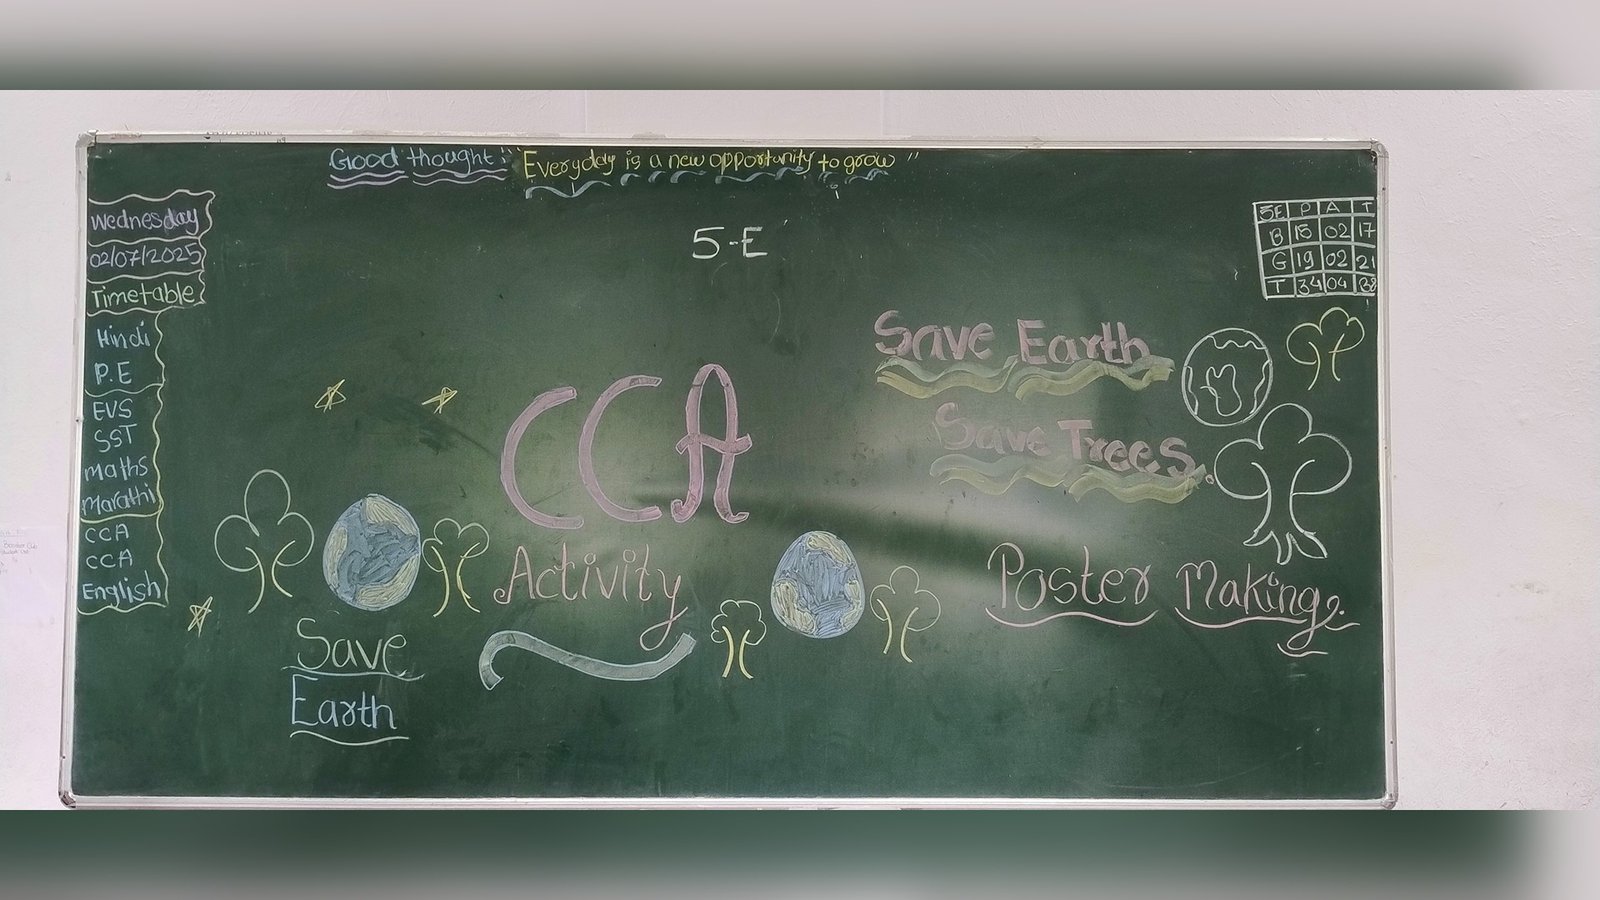 Good thought:- "Everyday is a new opportunity to grow"
Wednesday
02/07/2025
Timetable
Hindi
P.E
EVS
SST
Maths
Marathi
CCA
CCA
English
5-E
5E P A T
B 15 02 17
G 19 02 21
T 34 04 38
Save Earth
Save Trees
CCA
Activity
Poster Making
Save
Earth